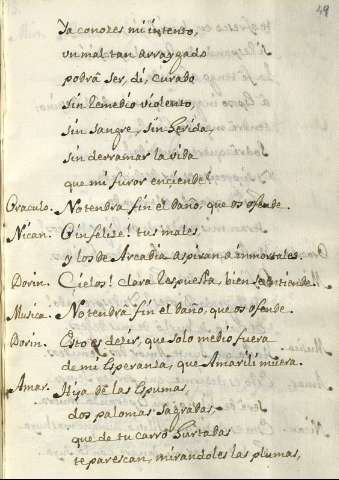 49
Ya conozes mi intento,
un mal tan arraygado
podrà ser, di, curado
sin remedio violento,
sin sangre, sin herida,
sin derramar la vida
que mi furor enciende?
Oraculo. No tendrà fin el daño, que os ofende.
Nican. O infelize! tus males
y los de Arcadia aspiran a inmortales.
Dorin. Cielos! clara respuesta, bien se entiende.
Musica. No tendrà fin el daño, que os ofende.
Dorin. Esto es dezir, que solo medio fuera
de mi esperanza, que Amarili muera.
Amar. Hija de las espumas,
dos palomas sagradas,
que de tu carro hurtadas
te parescan, mirandoles las plumas,